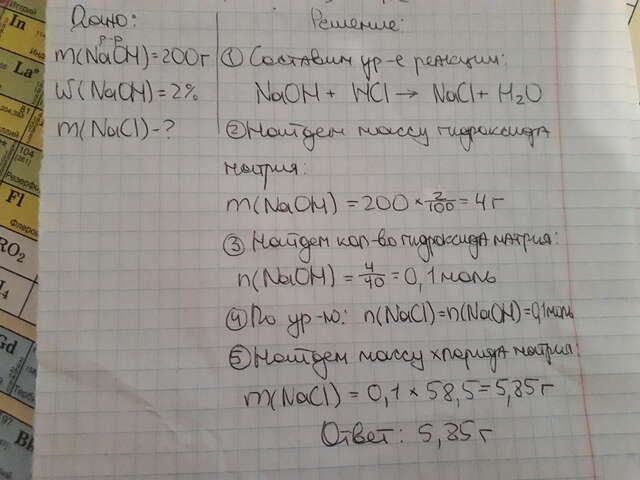 Дано:
m(NaOH)р-р=200г
W(NaOH)=2%
m(NaCl)-?
Решение:
① Составим ур-е реакции:
NaOH + HCl → NaCl + H₂O
② Найдем массу гидроксида
натрия:
m(NaOH) = 200 × 2/100 = 4г
③ Найдем кол-во гидроксида натрия:
n(NaOH) = 4/40 = 0,1 моль
④ По ур-ю: n(NaCl)=n(NaOH)=0,1моль
⑤ Найдем массу хлорида натрия:
m(NaCl) = 0,1 × 58,5 = 5,85г
Ответ: 5,85г
In
La
Fl
RO₂
Gd
Bk